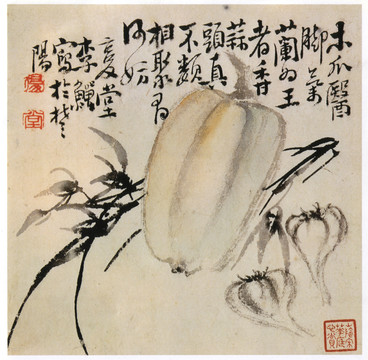 木瓜醫
脚氣
蘭為王
者香
蒜
頭真
不類
相聚有
何妨
復堂
李鱓
寫於楚
陽